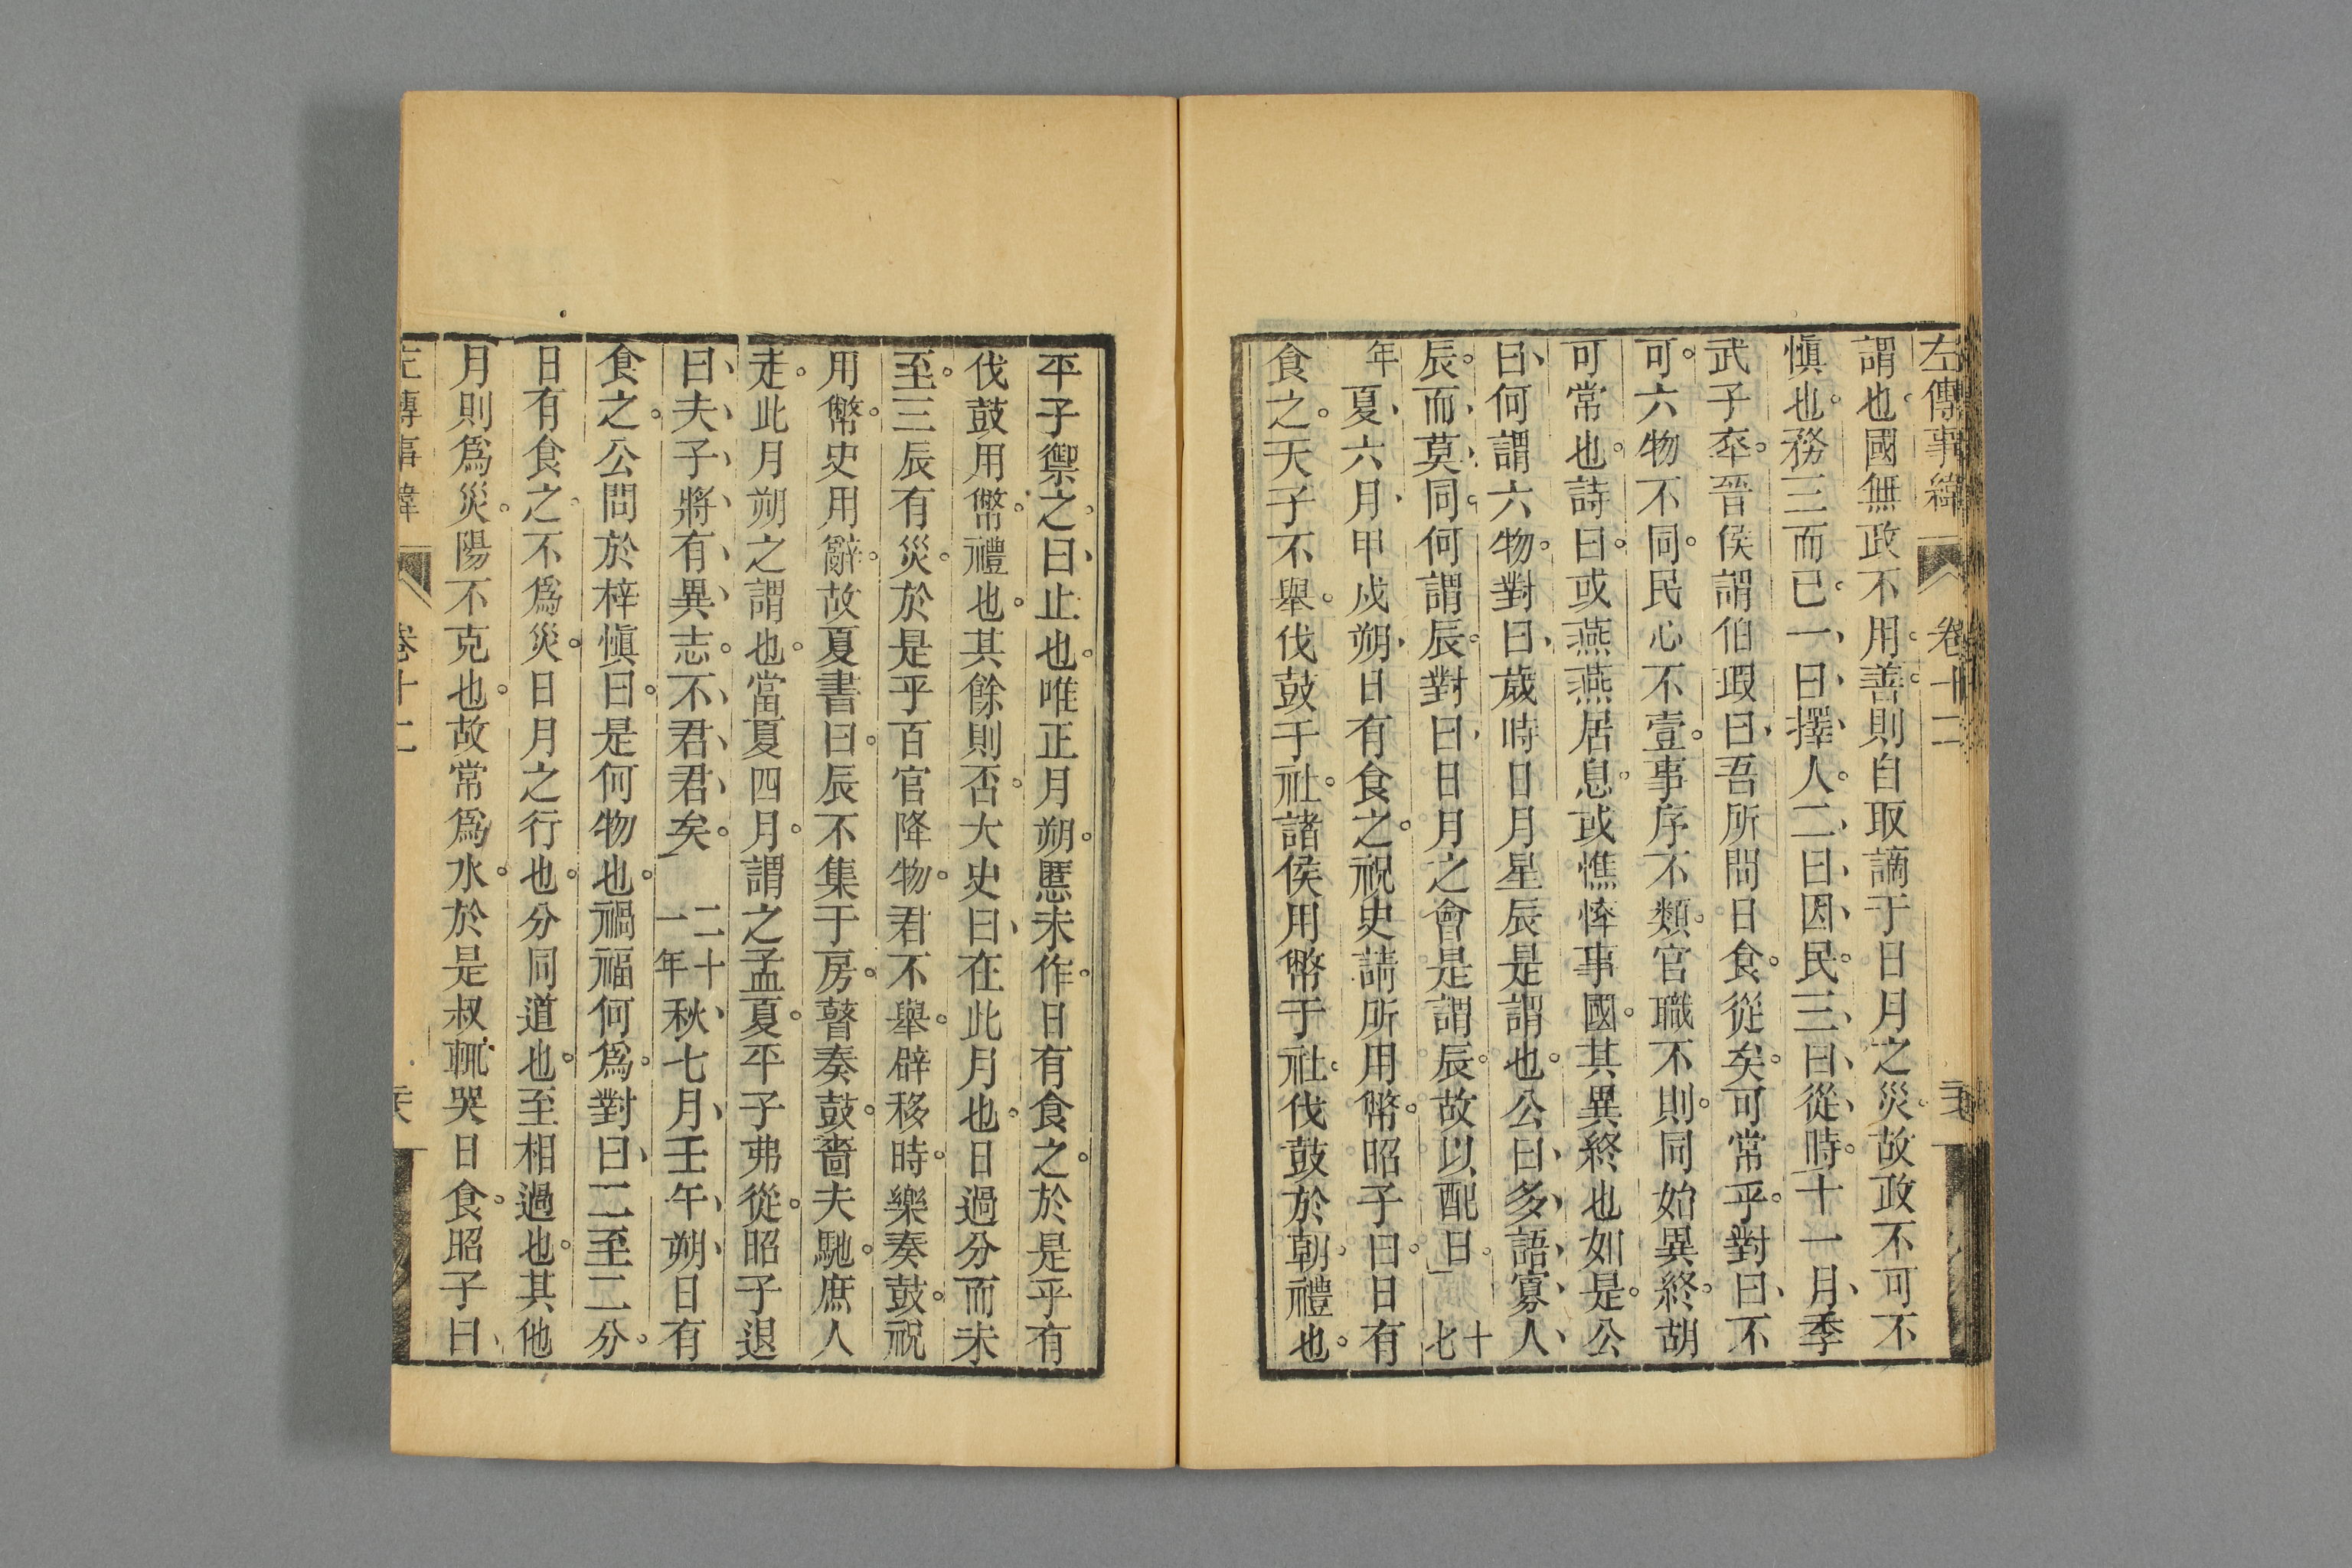 左傳事緯 卷十二
謂也國無政不用善則自取謫于日月之災故政不可不
慎也務三而已一曰擇人二曰因民三曰從時十一月季
武子卒晉侯謂伯瑕曰吾所問日食從矣可常乎對曰不
可六物不同民心不壹事序不類官職不則同始異終胡
可常也詩曰或燕燕居息或憔悴事國其異終也如是公
曰何謂六物對曰歲時日月星辰是謂也公曰多語寡人
辰而莫同何謂辰對曰日月之會是謂辰故以配日 十七
年夏六月甲戌朔日有食之祝史請所用幣昭子曰日有
食之天子不舉伐鼓于社諸侯用幣于社伐鼓於朝禮也
平子禦之曰止也唯正月朔慝未作日有食之於是乎有
伐鼓用幣禮也其餘則否大史曰在此月也日過分而未
至三辰有災於是乎百官降物君不舉辟移時樂奏鼓祝
用幣史用辭故夏書曰辰不集于房瞽奏鼓嗇夫馳庶人
走此月朔之謂也當夏四月謂之孟夏平子弗從昭子退
曰夫子將有異志不君君矣 二十一年秋七月壬午朔日有
食之公問於梓慎曰是何物也禍福何為對曰二至二分
日有食之不為災日月之行也分同道也至相過也其他
月則為災陽不克也故常為水於是叔輒哭日食昭子曰
左傳事緯 卷十二